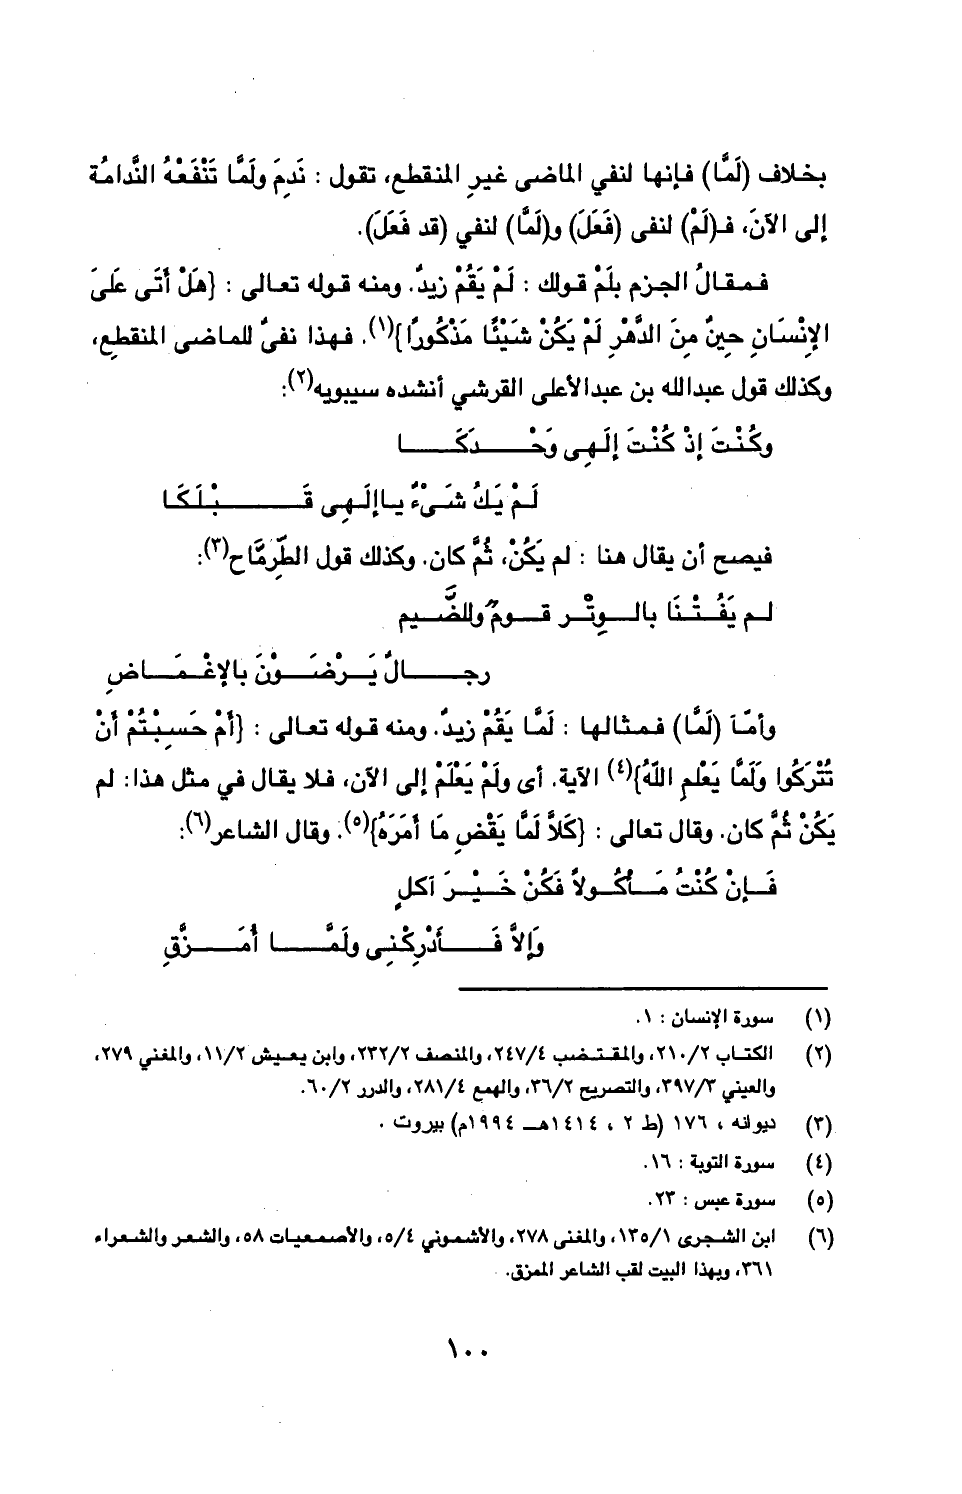 بخلاف (لَمَّا) فإنها لنفي الماضى غيرِ المنقطع، تقول : نَدِمَ ولَمَّا تَنْفَعْهُ النَّدامةُ
إلى الآنَ، فـ(لَمْ) لنفى (فَعَلَ) و(لَمَّا) لنفي (قد فَعَلَ).
فـمـقـالُ الـجـزمِ بـلَمْ قـولك : لَمْ يَقُمْ زيدٌ. ومنه قوله تعـالى : {هَلْ أَتَى عَلَىَ
الإنْسَانِ حينٌ منَ الدَّهْرِ لَمْ يَكُنْ شَيْئًا مَذْكُورًا}(١). فـهـذا نفىٌ للمـاضى المنقطعِ،
وكذلك قول عبدالله بن عبدالأعلى القرشي أنشده سيبويه(٢):
وكُنْتَ إذْ كُنْتَ إلَهِى وَحْـــــدَكَـــــا
لَمْ يَكُ شَىْءٌ يـاإلَهِى قَـــــبْلَكَا
فيصح أن يقال هنا : لم يَكُنْ، ثُمَّ كان. وكذلك قول الطِّرِمَّاح(٣):
لـم يَفُـتْـنَا بالـــوِتْـر قـــومٌ وللضَّـيم
رجـــــالٌ يَـرْضَـــوْنَ بالإغْـمَـــاضِ
وأمّـا (لَمَّا) فـمـثـالـهـا : لَمَّا يَقُمْ زيدٌ. ومنه قـوله تعـالى : {أَمْ حَسِبْتُمْ أَنْ
تُتْرَكُوا وَلَمَّا يَعْلَمِ اللَّهُ}(٤) الآية. أى ولَمْ يَعْلَمْ إلى الآن، فـلا يقال في مثل هذا: لم
يَكُنْ ثُمَّ كان. وقال تعـالى : {كَلاَّ لَمَّا يَقْضِ مَا أَمَرَهُ}(٥). وقال الشاعر(٦):
فَـإنْ كُنْتُ مَـأكُـولاً فَكُنْ خَـيْـرَ آكلٍ
وَإلاَّ فَـــأَدْرِكْنِى ولَمَّـــا أُمَـــزَّقِ
(١) سورة الإنسان : ١.
(٢) الكتـاب ٢١٠/٢، والمقـتـضب ٢٤٧/٤، والمنصف ٢٣٢/٢، وابن يعـيش ١١/٢، والمغني ٢٧٩،
والعيني ٣٩٧/٣، والتصريح ٣٦/٢، والهمع ٢٨١/٤، والدرر ٦٠/٢.
(٣) ديوانه ، ١٧٦ (ط ٢ ، ١٤١٤هـ ١٩٩٤م) بيروت .
(٤) سورة التوبة : ١٦.
(٥) سورة عبس : ٢٣.
(٦) ابن الشجرى ١٣٥/١، والمغنى ٢٧٨، والأشموني ٥/٤، والأصمعيات ٥٨، والشعر والشعراء
٣٦١، وبهذا البيت لقب الشاعر الممزق.
١٠٠